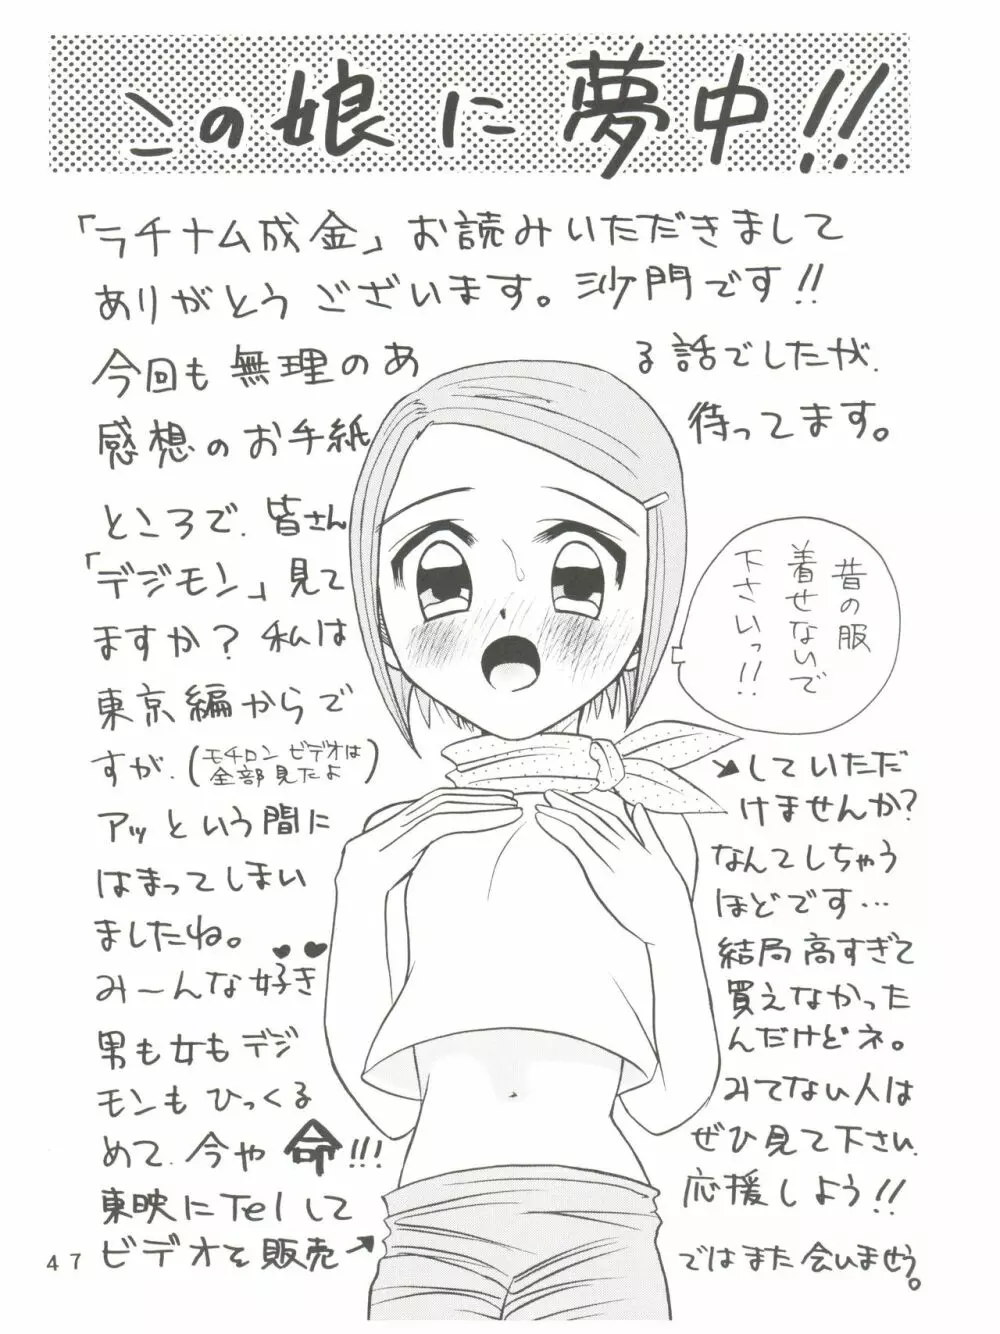 この娘に夢中!!
「ラチナム成金」お読みいただきまして
ありがとうございます。沙門です!!
今回も無理のある話でしたが、
感想のお手紙待ってます。
ところで、皆さん
「デジモン」見て
ますか?私は
東京編からで
すが、(モチロンビデオは
全部見たよ)
アッという間に
はまってしまい
ましたね。
み〜んな好き♥♥
男も女もデジ
モンもひっくる
めて、今や命!!!
東映にTelして
ビデオを販売→
→していただ
けませんか?
なんてしちゃう
ほどです…
結局高すぎて
買えなかった
んだけどネ。
みてない人は
ぜひ見て下さい、
応援しよう!!
ではまた会いませう。
昔の服
着せないで
下さいっ!!
47